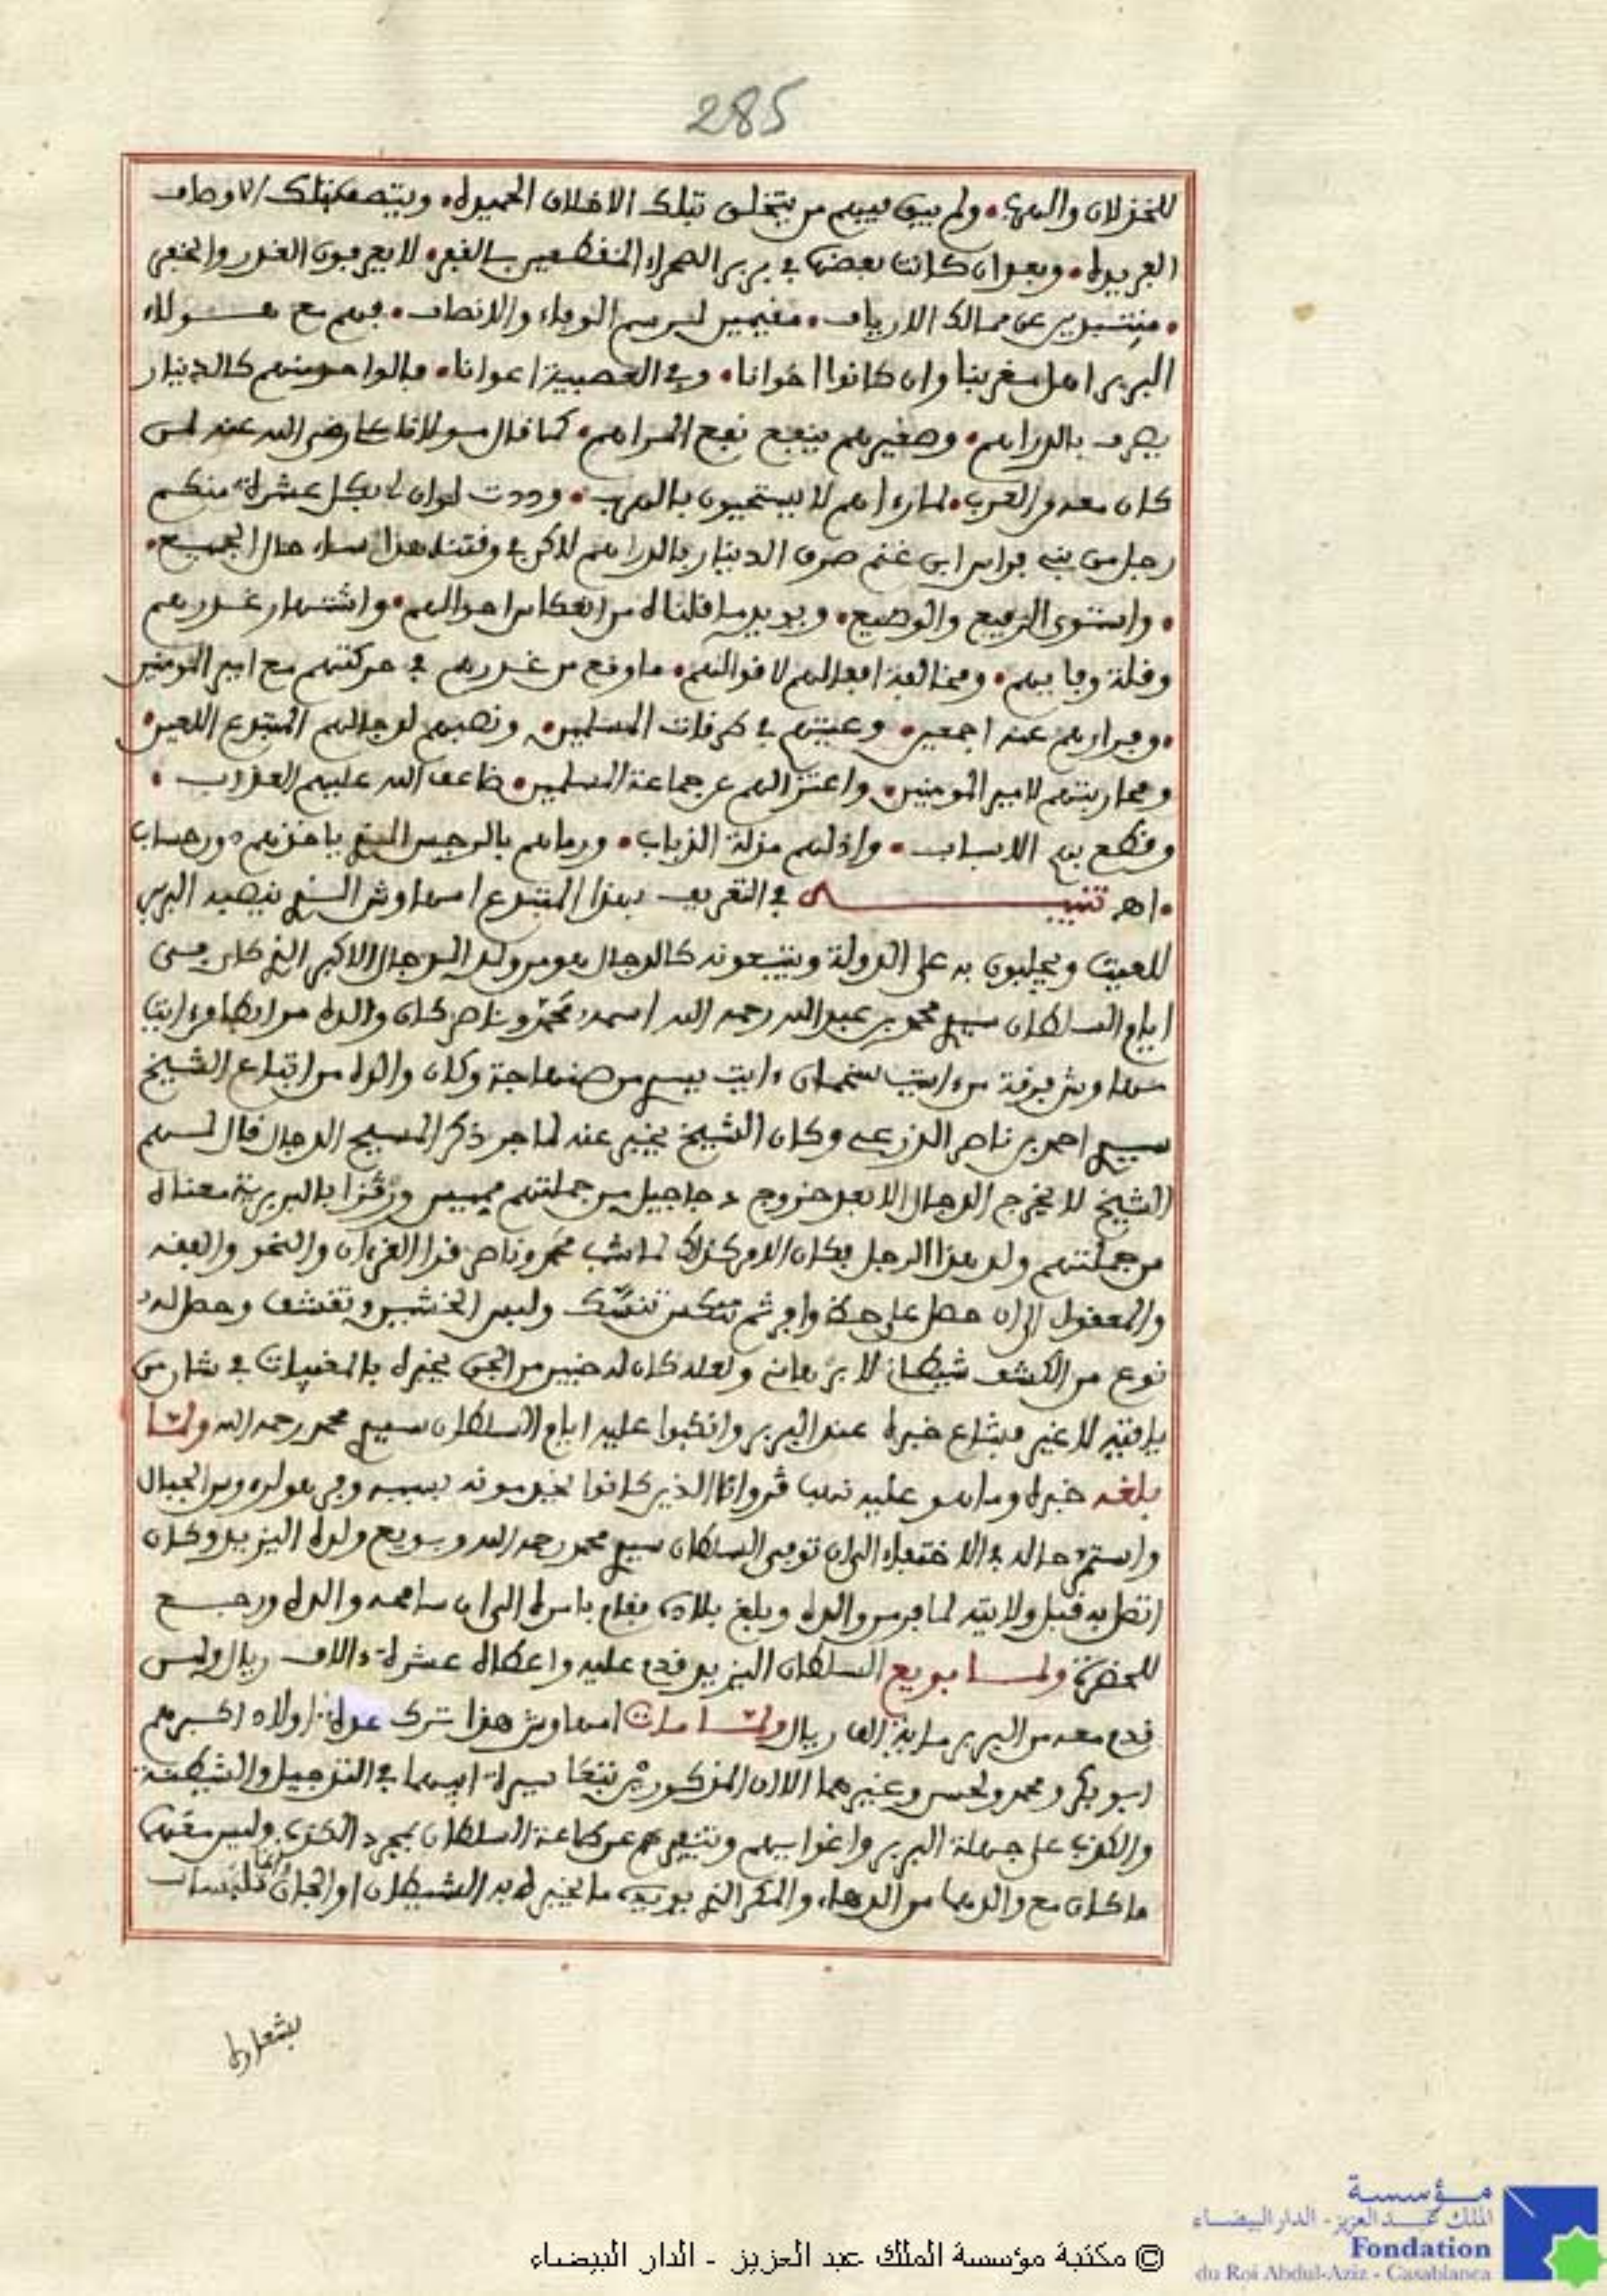 285
للخذلان والهرب • ولم يبق فيهم من يتخلق بتلك الاخلاق الحميدة • ويتصف بتلك الاوصاف
الفريدة • وبعد ان كانت بعضها في بربر الصحراء المنقطعين بالقفر • لا يعرفون الغدر والخفر
• منتبذين عن ممالك الارياف • مقيمين لرسم الوفاء والانصاف • فهم مع هولاء
البربر اهل مغربنا وان كانوا اخوانا • وفي العصبية اعوانا • فالواحد منهم كالدينار
يصرف بالدراهم • وصغيرهم ينفع نفع المراهم • كما قال مولانا علي رضي الله عنه لمن
كان معه من العرب • لما رءاهم لا يستحيون بالهرب • وددت لو ان لي بكل عشرة منكم
رجل من بني فراس ابن غنم صرف الدينار بالدراهم لاكن في وقتنا هذا ساء حال الجميع •
• واستوى الرفيع والوضيع • ويويد ما قلناه من انعكاس احوالهم • واشتهار غدرهم
وقلة وفايهم • ومخالفة افعالهم لاقوالهم • ما وقع من غدرهم في حركتهم مع امير المومنين
• وفرارهم عنه اجمعين • وعيثهم في طرقات المسلمين • ونصبهم لدجالهم المبتدع اللعين •
ومحاربتهم لامير المومنين • واعتزالهم عن جماعة المسلمين • ضاعف الله عليهم العذاب •
وقطع بهم الاسباب • واذلهم مذلة الذباب • ورماهم بالرجس الذي ياخذهم دون حساب
• اهـ تنبيه في التعريف بهذا المبتدع امهاوش الذي ينصبه البربر
للعيث ويجلبون به على الدولة ويتبعونه كالدجال هو من ولد الدجال الاكبر الذي كان يسمى
ايام السلطان سيدي محمد بن عبد الله رحمه الله اسمه محمد وناصر كان والده مرابطا من ايت
مهاوش فرقة من ايت سخمان وايت يسري من صنهاجة وكان والده من اتباع الشيخ
سيدي احمد بن ناصر الدرعي وكان الشيخ يخبر عنه لما جر ذكر المسيح الدجال قال لهم
الشيخ لا يخرج الدجال الا بعد خروج دجاجيل من جملتهم ميميس ورڭزا بالبربرية معناه
من جملتهم ولد هذا الرجل فكان الامر كذلك لما شب محمد وناصر قرا القرءان والنحو والفقه
والمعقول الى ان حصل على حظ وافر ثم تنسك ولبس الخشين وتقشف وحصل له
نوع من الكشف شيطاني لا برهاني ولعله كان له خبير من الجن يخبره بالمغيبات في شان من
ياتيه لا غير فشاع خبره عند البربر وانكبوا عليه ايام السلطان سيدي محمد رحمه الله ولما
بلغه خبره وما هو عليه نهب ڭروان الذين كانوا يخدمونه بسببه وفر هو لرءوس الجبال
واستمر حاله في الاختفاء الى ان توفي السلطان سيدي محمد رحمه الله وبويع ولده اليزيد وكان
اتصل به قبل ولايته لما فر من والده وبلغ بلاده فقام بامره الى ان سامحه والده ورجع
للحضرة ولما بويع السلطان اليزيد قدم عليه واعطاه عشرة ءالاف ريال ولمن
قدم معه من البربر ماية الف ريال ولما مات امهاوش هذا ترك عدة اولاد اكبرهم
ابو بكر ومحمد ولحسن وغيرهما الا ان المذكورين تبعا سيرة ابيهما في التدجيل والشيطنة
والكذب على جهلة البربر واغوايهم وتنفيرهم عن طاعة السلطان بمجرد الكذب وليس معهما
ما كان مع والدهما من الدهاء والمكر الذي يويده ما يخبره به الشيطان او الجان وانما تلبسا
بشعاره
© مكتبة مؤسسة الملك عبد العزيز - الدار البيضاء
مؤسسة
الملك عبد العزيز - الدار البيضاء
Fondation
du Roi Abdul-Aziz - Casablanca